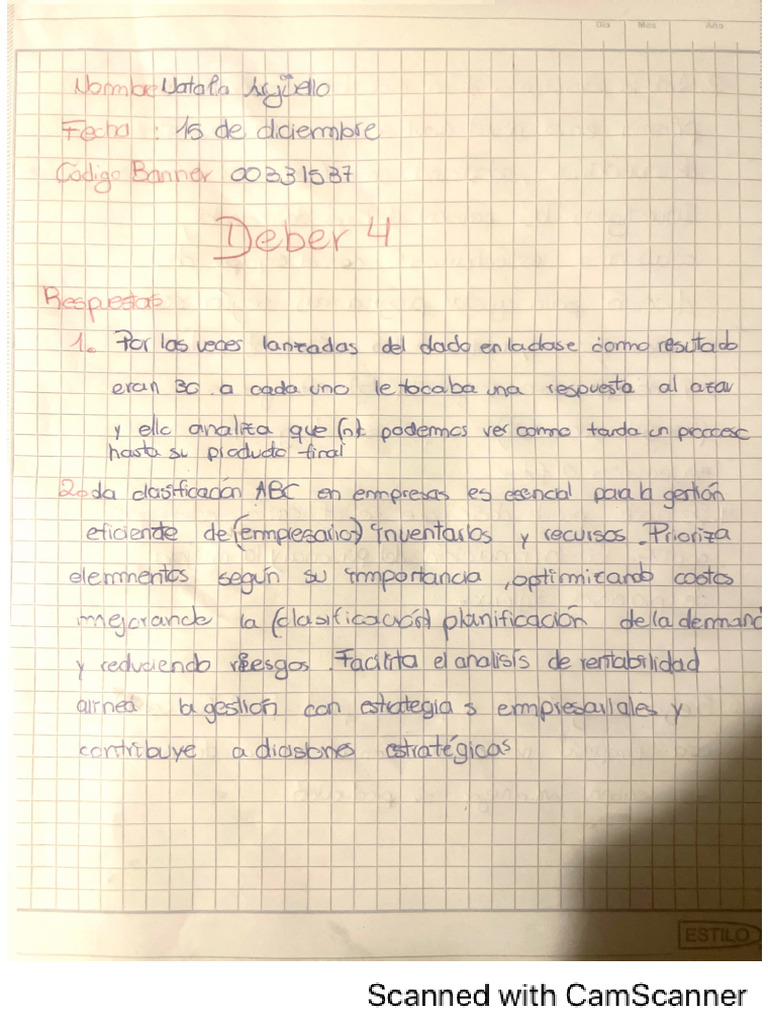 Dia Mes Año
Nombre Natalia Argüello
Fecha : 15 de diciembre
Código Banner 00331537
Deber 4
Respuestas
1. Por las veces lanzadas del dado en la clase como resultado
eran 30 a cada uno le tocaba una respuesta al azar
y ello analiza que podemos ver como tarda un proceso
hasta su producto final
2. La clasificación ABC en empresas es esencial para la gestión
eficiente de (empresario) inventarios y recursos. Prioriza
elementos según su importancia, optimizando costos
mejorando la (clasificación) planificación de la demand
y reduciendo riesgos. Facilita el analisis de rentabilidad
alinea la gestión con estrategias empresariales y
contribuye a dicisiones estratégicas
ESTILO
Scanned with CamScanner